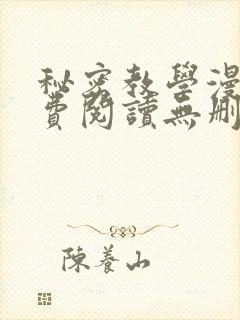 秘密教學漫
費閱讀無刪
陳養山